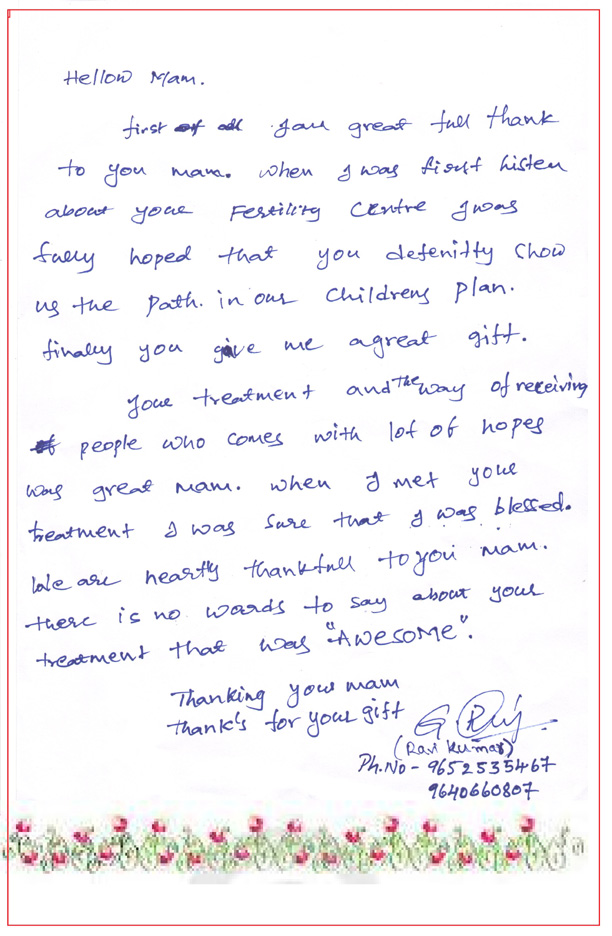 Hellow Mam.
first of all your great full thank
to you mam. When I was first listen
about your Festility Centre I was
fully hoped that you defenitly show
us the path. in our childrens plan.
finally you give me a great gift.
Your treatment and the way of receiving
people who comes with lot of hopes
was great mam. when I met your
treatment I was sure that I was blessed.
We are heartly thankfull to you mam.
there is no words to say about your
treatment that was "AWESOME".
Thanking your mam
thank's for your gift
G Ravi
(Ravi Kumar)
Ph.No - 9652535467
9640660807